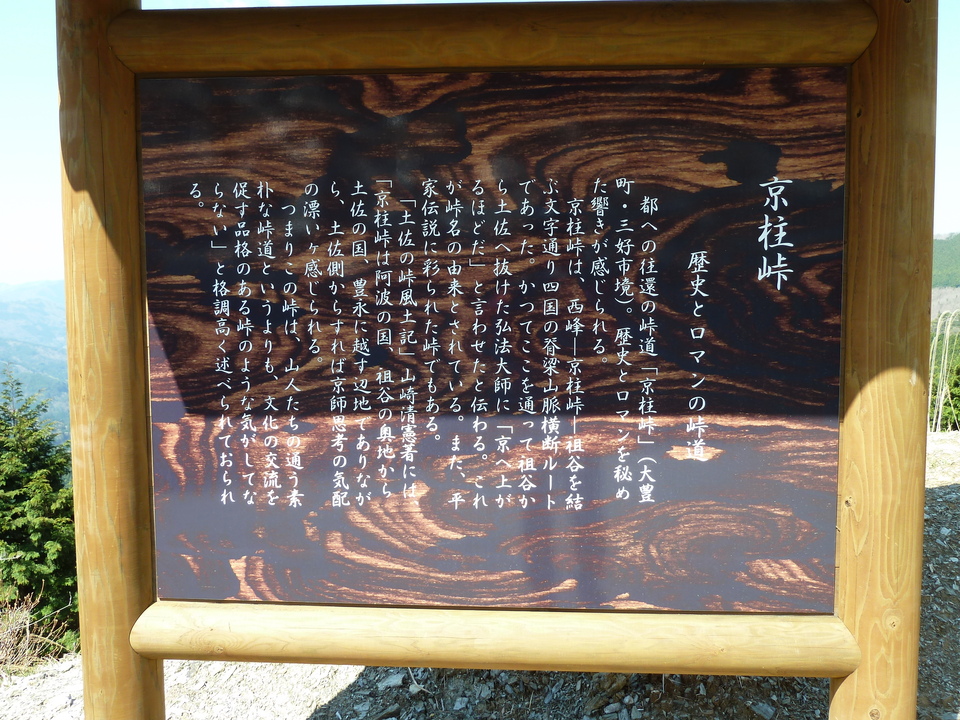 京柱峠
歴史とロマンの峠道
都への往還の峠道「京柱峠」(大豊
町・三好市境)。歴史とロマンを秘め
た響きが感じられる。
京柱峠は、西峰―京柱峠―祖谷を結
ぶ文字通り四国の脊梁山脈横断ルート
であった。かつてここを通って祖谷か
ら土佐へ抜けた弘法大師に「京へ上が
るほどだ」と言わせたと伝わる。これ
が峠名の由来とされている。また、平
家伝説に彩られた峠でもある。
「土佐の峠風土記」山崎清憲著には
「京柱峠は阿波の国、祖谷の奥地から
土佐の国、豊永に越す辺地でありなが
ら、土佐側からすれば京師思考の気配
の漂いヶ感じられる。
つまりこの峠は、山人たちの通う素
朴な峠道というよりも、文化の交流を
促す品格のある峠のような気がしてな
らない」と格調高く述べられておられ
る。